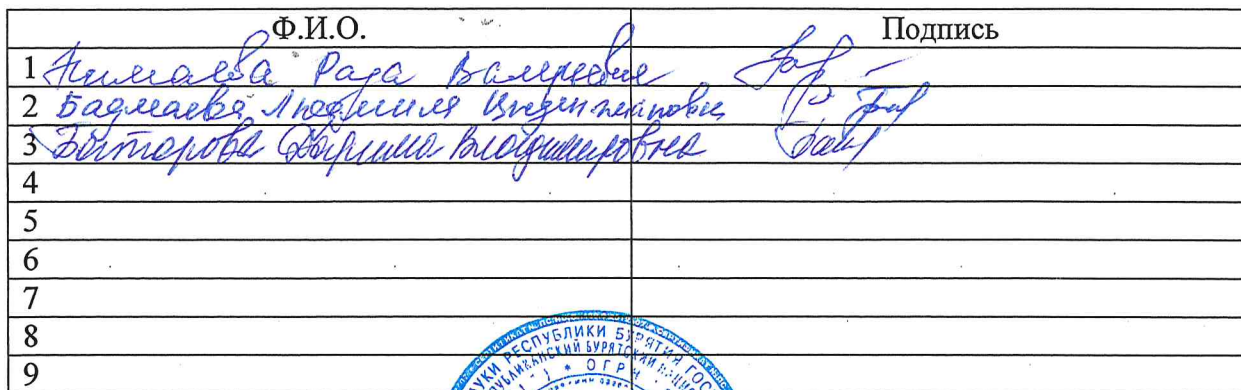 Ф.И.О. Подпись
1 Нимаева Рада Валерьевна
2 Бадмаева Людмила Цыденжаповна
3 Батторова Дарима Владимировна
4
5
6
7
8
9
НАУКИ РЕСПУБЛИКИ БУРЯТИЯ ГОС
РЕСПУБЛИКАНСКИЙ БУРЯТСКИЙ НАЦИ
* ОГРН